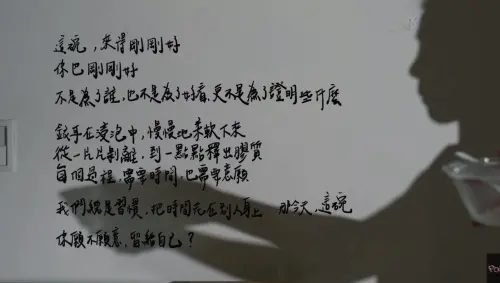 這碗，來得剛剛好
你也剛剛好
不是為了誰，也不是為了好看，更不是為了證明些什麼
銀耳在浸泡中，慢慢地柔軟下來
從一片片剝離，到一點點釋出膠質
每個過程，需要時間，也需要意願
我們總是習慣，把時間花在別人身上 那今天，這碗
你願不願意，留給自己？